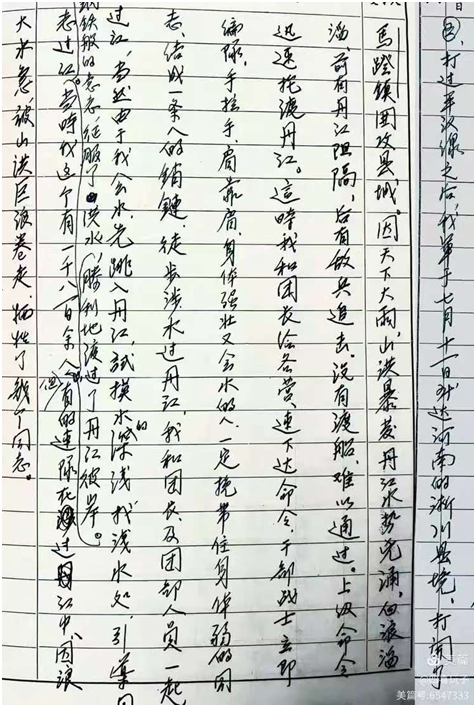 打过平汉線之后,我軍于七月十一日到达河南的淅川县境,打開了
馬蹬鎮围攻县城。因天下大雨,山洪暴发丹江水势汹涌,白浪滔
滔,前有丹江阻隔,后有敌兵追击。没有渡船,难以通过。上级命令
迅速抢渡丹江。這時我和团长给各营、连下达命令,干部战士立即
编队,手拉手,肩靠肩,身体强壮又会水的人一定挽带住身体弱的同
志,结成一条人的锁鏈,徒步涉水过丹江,我和团长及团部人员一起
过江,当然由于我会水,先跳入丹江,試摸水的深浅找浅水处,引導同
钢铁般的意志征服了洪水,勝利地渡过了丹江彼岸。
志过江。当時我这个有一千八百余人但有的连队在过江中,因浪
大水急,被山洪巨浪卷走,牺牲了几个同志。
美篇
美篇号:6547333